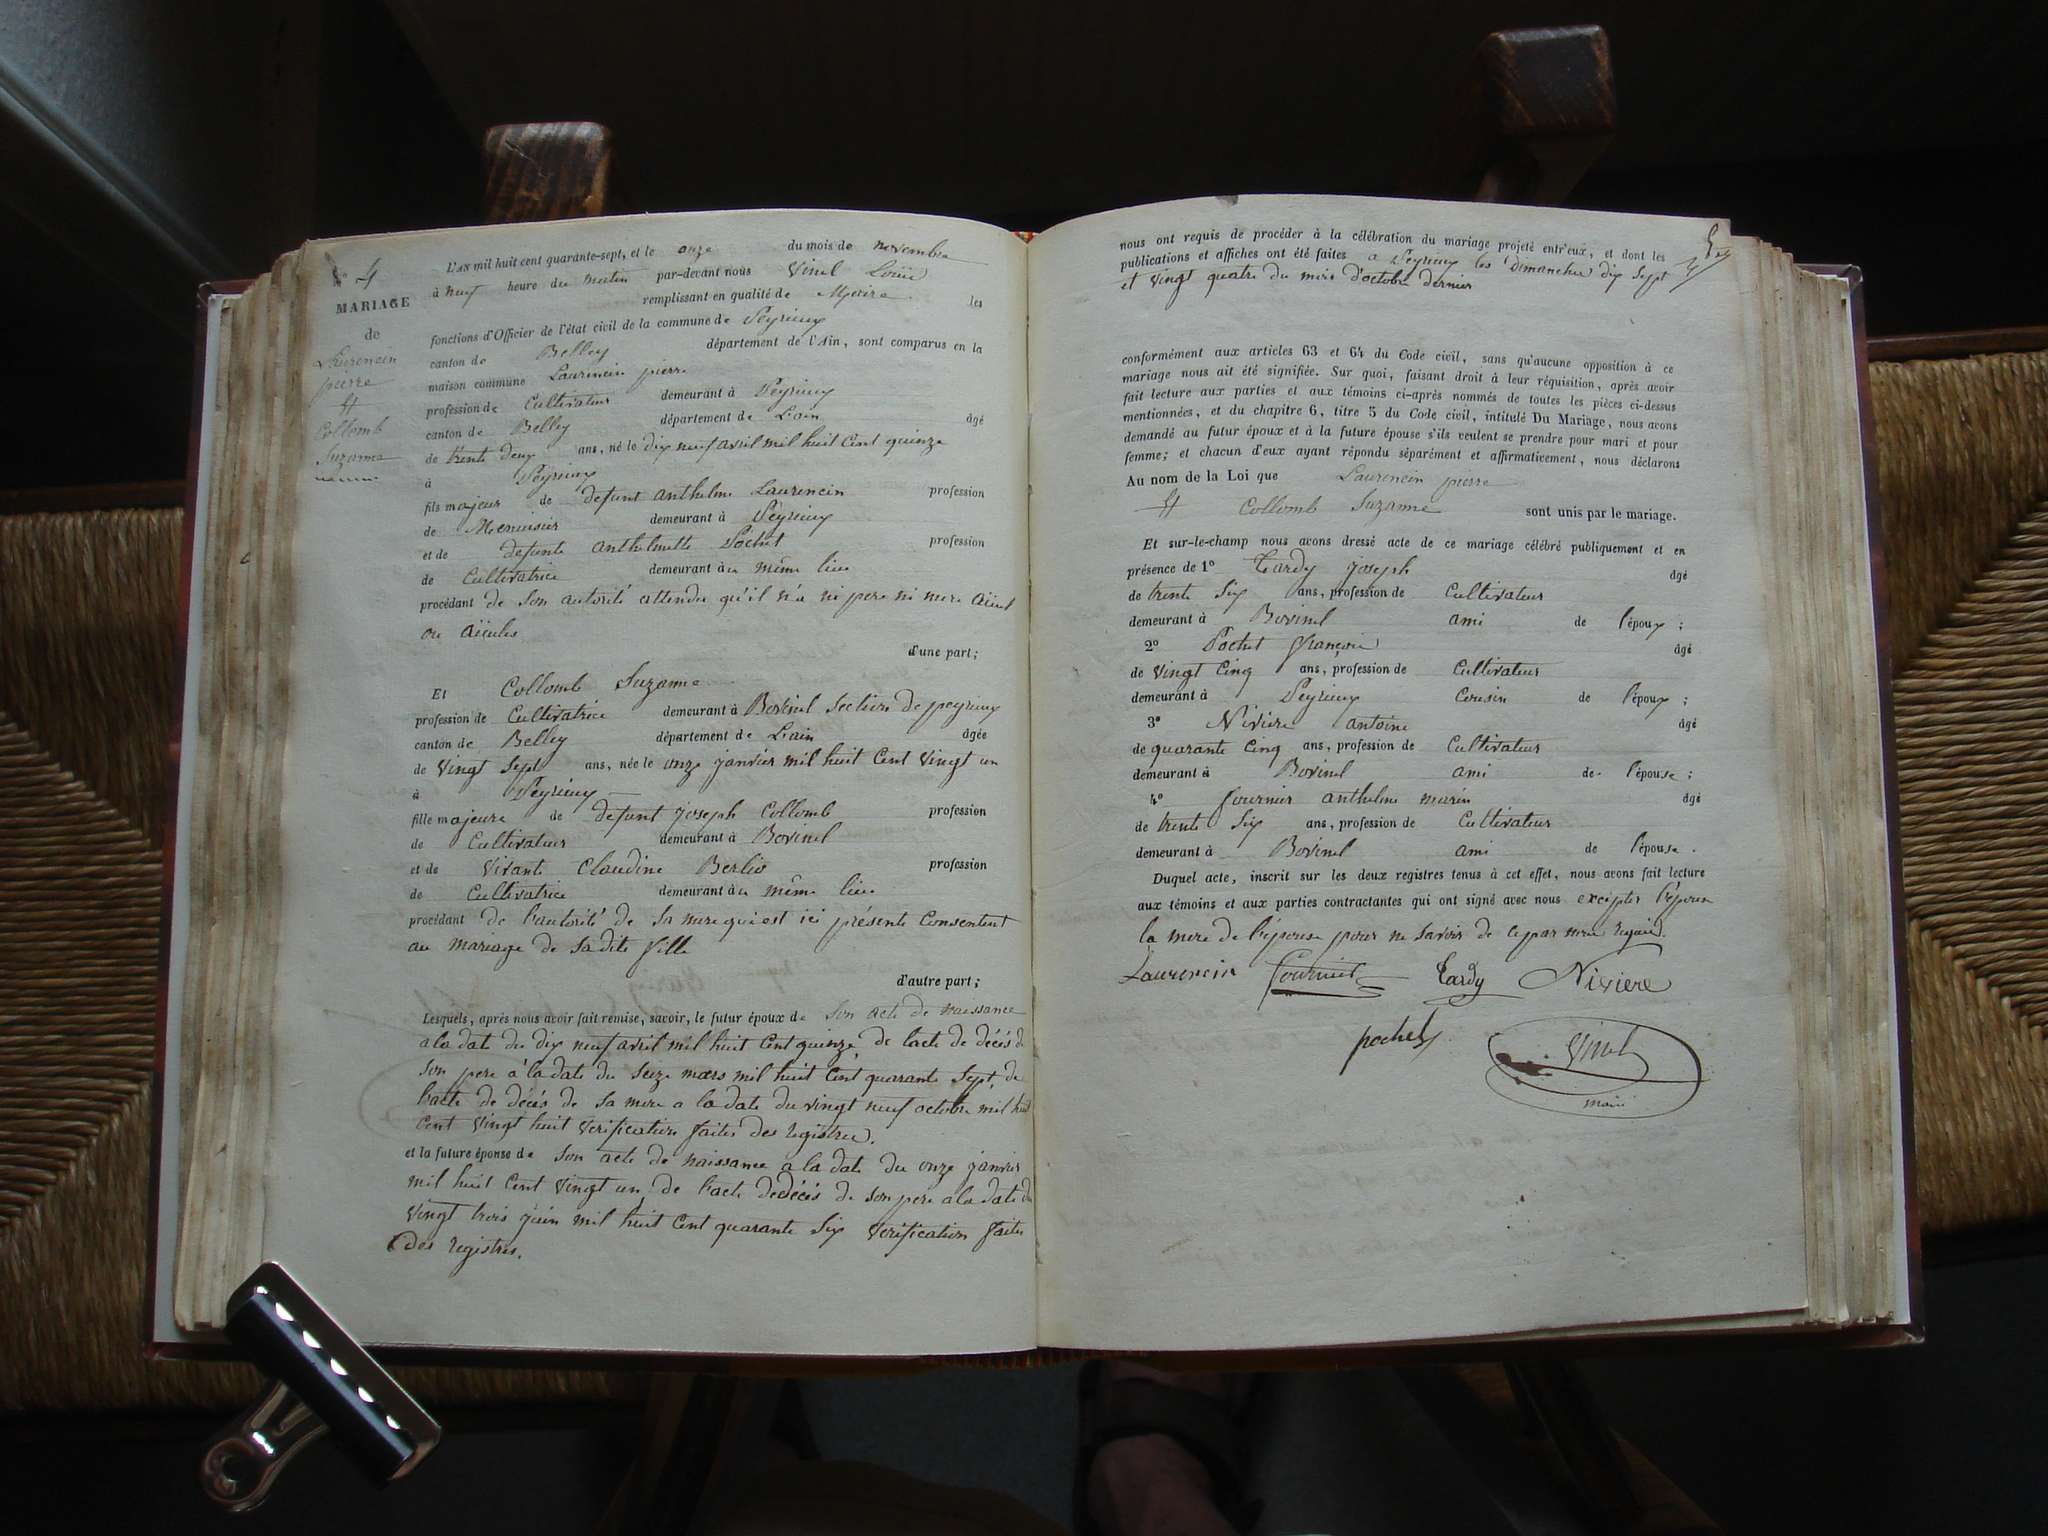 N° 4
MARIAGE
de
Laurencin
pierre
et
Collomb
Suzanne
L'AN mil huit cent quarante-sept, et le onze du mois de novembre
à neuf heure du matin par-devant nous Vinel Louis
remplissant en qualité de Maire les
fonctions d'Officier de l'état civil de la commune de Peyrieux
canton de Belley département de l'Ain, sont comparus en la
maison commune Laurencin pierre
profession de Cultivateur demeurant à Peyrieux
canton de Belley département de L'ain âgé
de trente deux ans, né le dix neuf avril mil huit Cent quinze
à Peyrieux
fils majeur de defunt anthelme Laurencin profession
de Menuisier demeurant à Peyrieux
et de defunte anthelmette Pochet profession
de Cultivatrice demeurant au même lieu
procédant de Son autorité attendu qu'il n'a ni pere ni mere aïeul
ou aïeules
d'une part;
Et Collomb Suzanne
profession de Cultivatrice demeurant à Bovinel Section de peyrieux
canton de Belley département de L'ain âgée
de Vingt Sept ans, née le onze janvier mil huit Cent Vingt un
à Peyrieux
fille majeure de defunt joseph Collomb profession
de Cultivateur demeurant à Bovinel
et de Vivante Claudine Berlio profession
de Cultivatrice demeurant au même lieu
procédant de l'autorité de Sa mere qui est ici présente Consentent
au mariage de sa dite fille
d'autre part;
Lesquels, après nous avoir fait remise, savoir, le futur époux de Son acte de naissance
a la date du dix neuf avril mil huit Cent quinze, de l'acte de décés de
Son pere à la date du Seize mars mil huit Cent quarante Sept, de
l'acte de décés de Sa mere a la date du vingt neuf octobre mil huit
Cent Vingt huit Verification faites des registres.
et la future épouse de Son acte de naissance a la date du onze janvier
mil huit Cent Vingt un, de l'acte de décés de Son pere a la date du
Vingt trois juin mil huit Cent quarante Six Verification faites
des registres.
nous ont requis de procéder à la célébration du mariage projeté entr'eux, et dont les
publications et affiches ont été faites a Peyrieux les Dimanches dix Sept
et Vingt quatre du mois d'octobre dernier
conformément aux articles 63 et 64 du Code civil, sans qu'aucune opposition à ce
mariage nous ait été signifiée. Sur quoi, faisant droit à leur réquisition, après avoir
fait lecture aux parties et aux témoins ci-après nommés de toutes les pièces ci-dessus
mentionnées, et du chapitre 6, titre 5 du Code civil, intitulé Du Mariage, nous avons
demandé au futur époux et à la future épouse s'ils veulent se prendre pour mari et pour
femme; et chacun d'eux ayant répondu séparément et affirmativement, nous déclarons
Au nom de la Loi que Laurencin pierre
et Collomb Suzanne sont unis par le mariage.
Et sur-le-champ nous avons dressé acte de ce mariage célébré publiquement et en
présence de 1° Tardy joseph âgé
de trente Six ans, profession de Cultivateur
demeurant à Bovinel ami de l'époux;
2° Pochet François âgé
de Vingt Cinq ans, profession de Cultivateur
demeurant à Peyrieux Cousin de l'époux;
3° Nivière antoine âgé
de quarante Cinq ans, profession de Cultivateur
demeurant à Bovinel ami de l'épouse;
4° fournier anthelme marin âgé
de trente Six ans, profession de Cultivateur
demeurant à Bovinel ami de l'épouse.
Duquel acte, inscrit sur les deux registres tenus à cet effet, nous avons fait lecture
aux témoins et aux parties contractantes qui ont signé avec nous exceptés l'épouse
la mere de l'épouse pour ne savoir de ce par nous requis.
Laurencin Fournier Tardy Niviere
pochet Vinel
maire